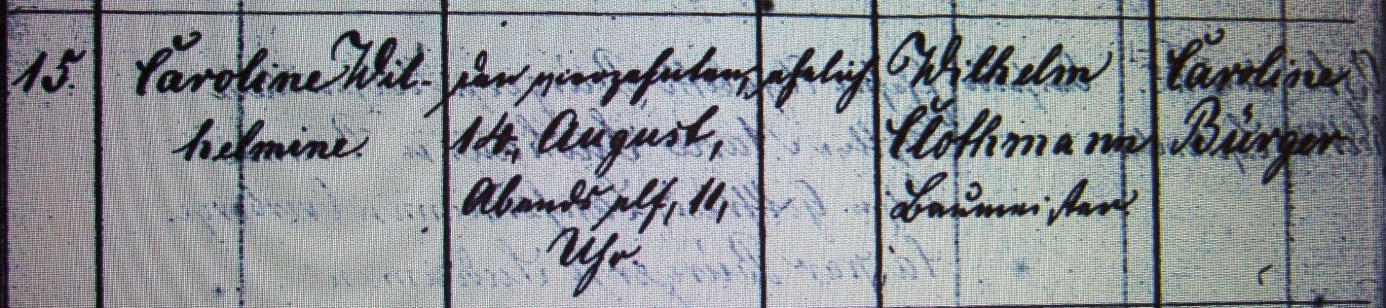 15.
Caroline Wil-
helmine.
den vierzehnten,
14, August,
Abends elf, 11,
Uhr.
ehelich.
Wilhelm
Clothmann
Baumeister
Caroline
Bürger